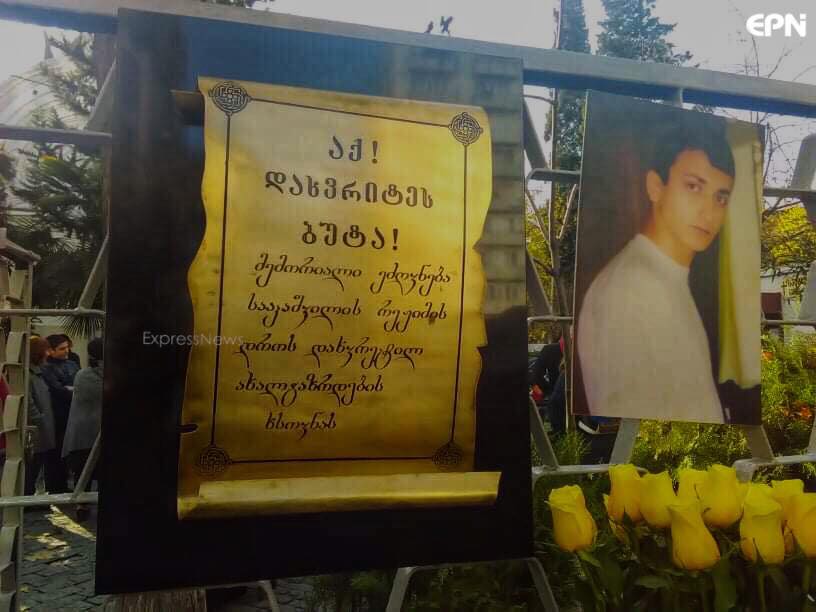 EPN
აქ!
დახვრიტეს
ბუტა!
მემორიალი ეძღვნება
სააკაშვილის რეჟიმის
დროს დახვრეტილ
ახალგაზრდების
ხსოვნას
ExpressNews